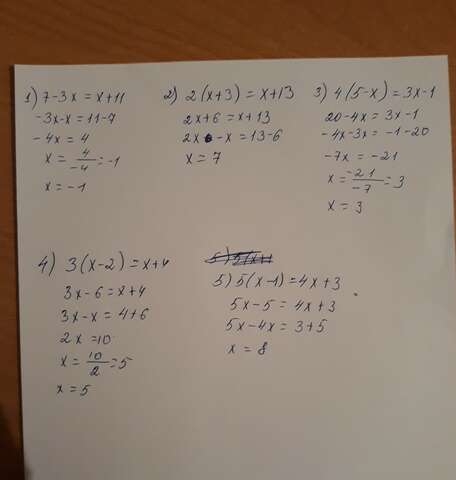 1) 7-3x = x+11
-3x-x = 11-7
-4x = 4
x = 4/-4 = -1
x = -1
2) 2(x+3) = x+13
2x+6 = x+13
2x-x = 13-6
x = 7
3) 4(5-x) = 3x-1
20-4x = 3x-1
-4x-3x = -1-20
-7x = -21
x = -21/-7 = 3
x = 3
4) 3(x-2) = x+4
3x-6 = x+4
3x-x = 4+6
2x = 10
x = 10/2 = 5
x = 5
5) 5(x-1) = 4x+3
5x-5 = 4x+3
5x-4x = 3+5
x = 8